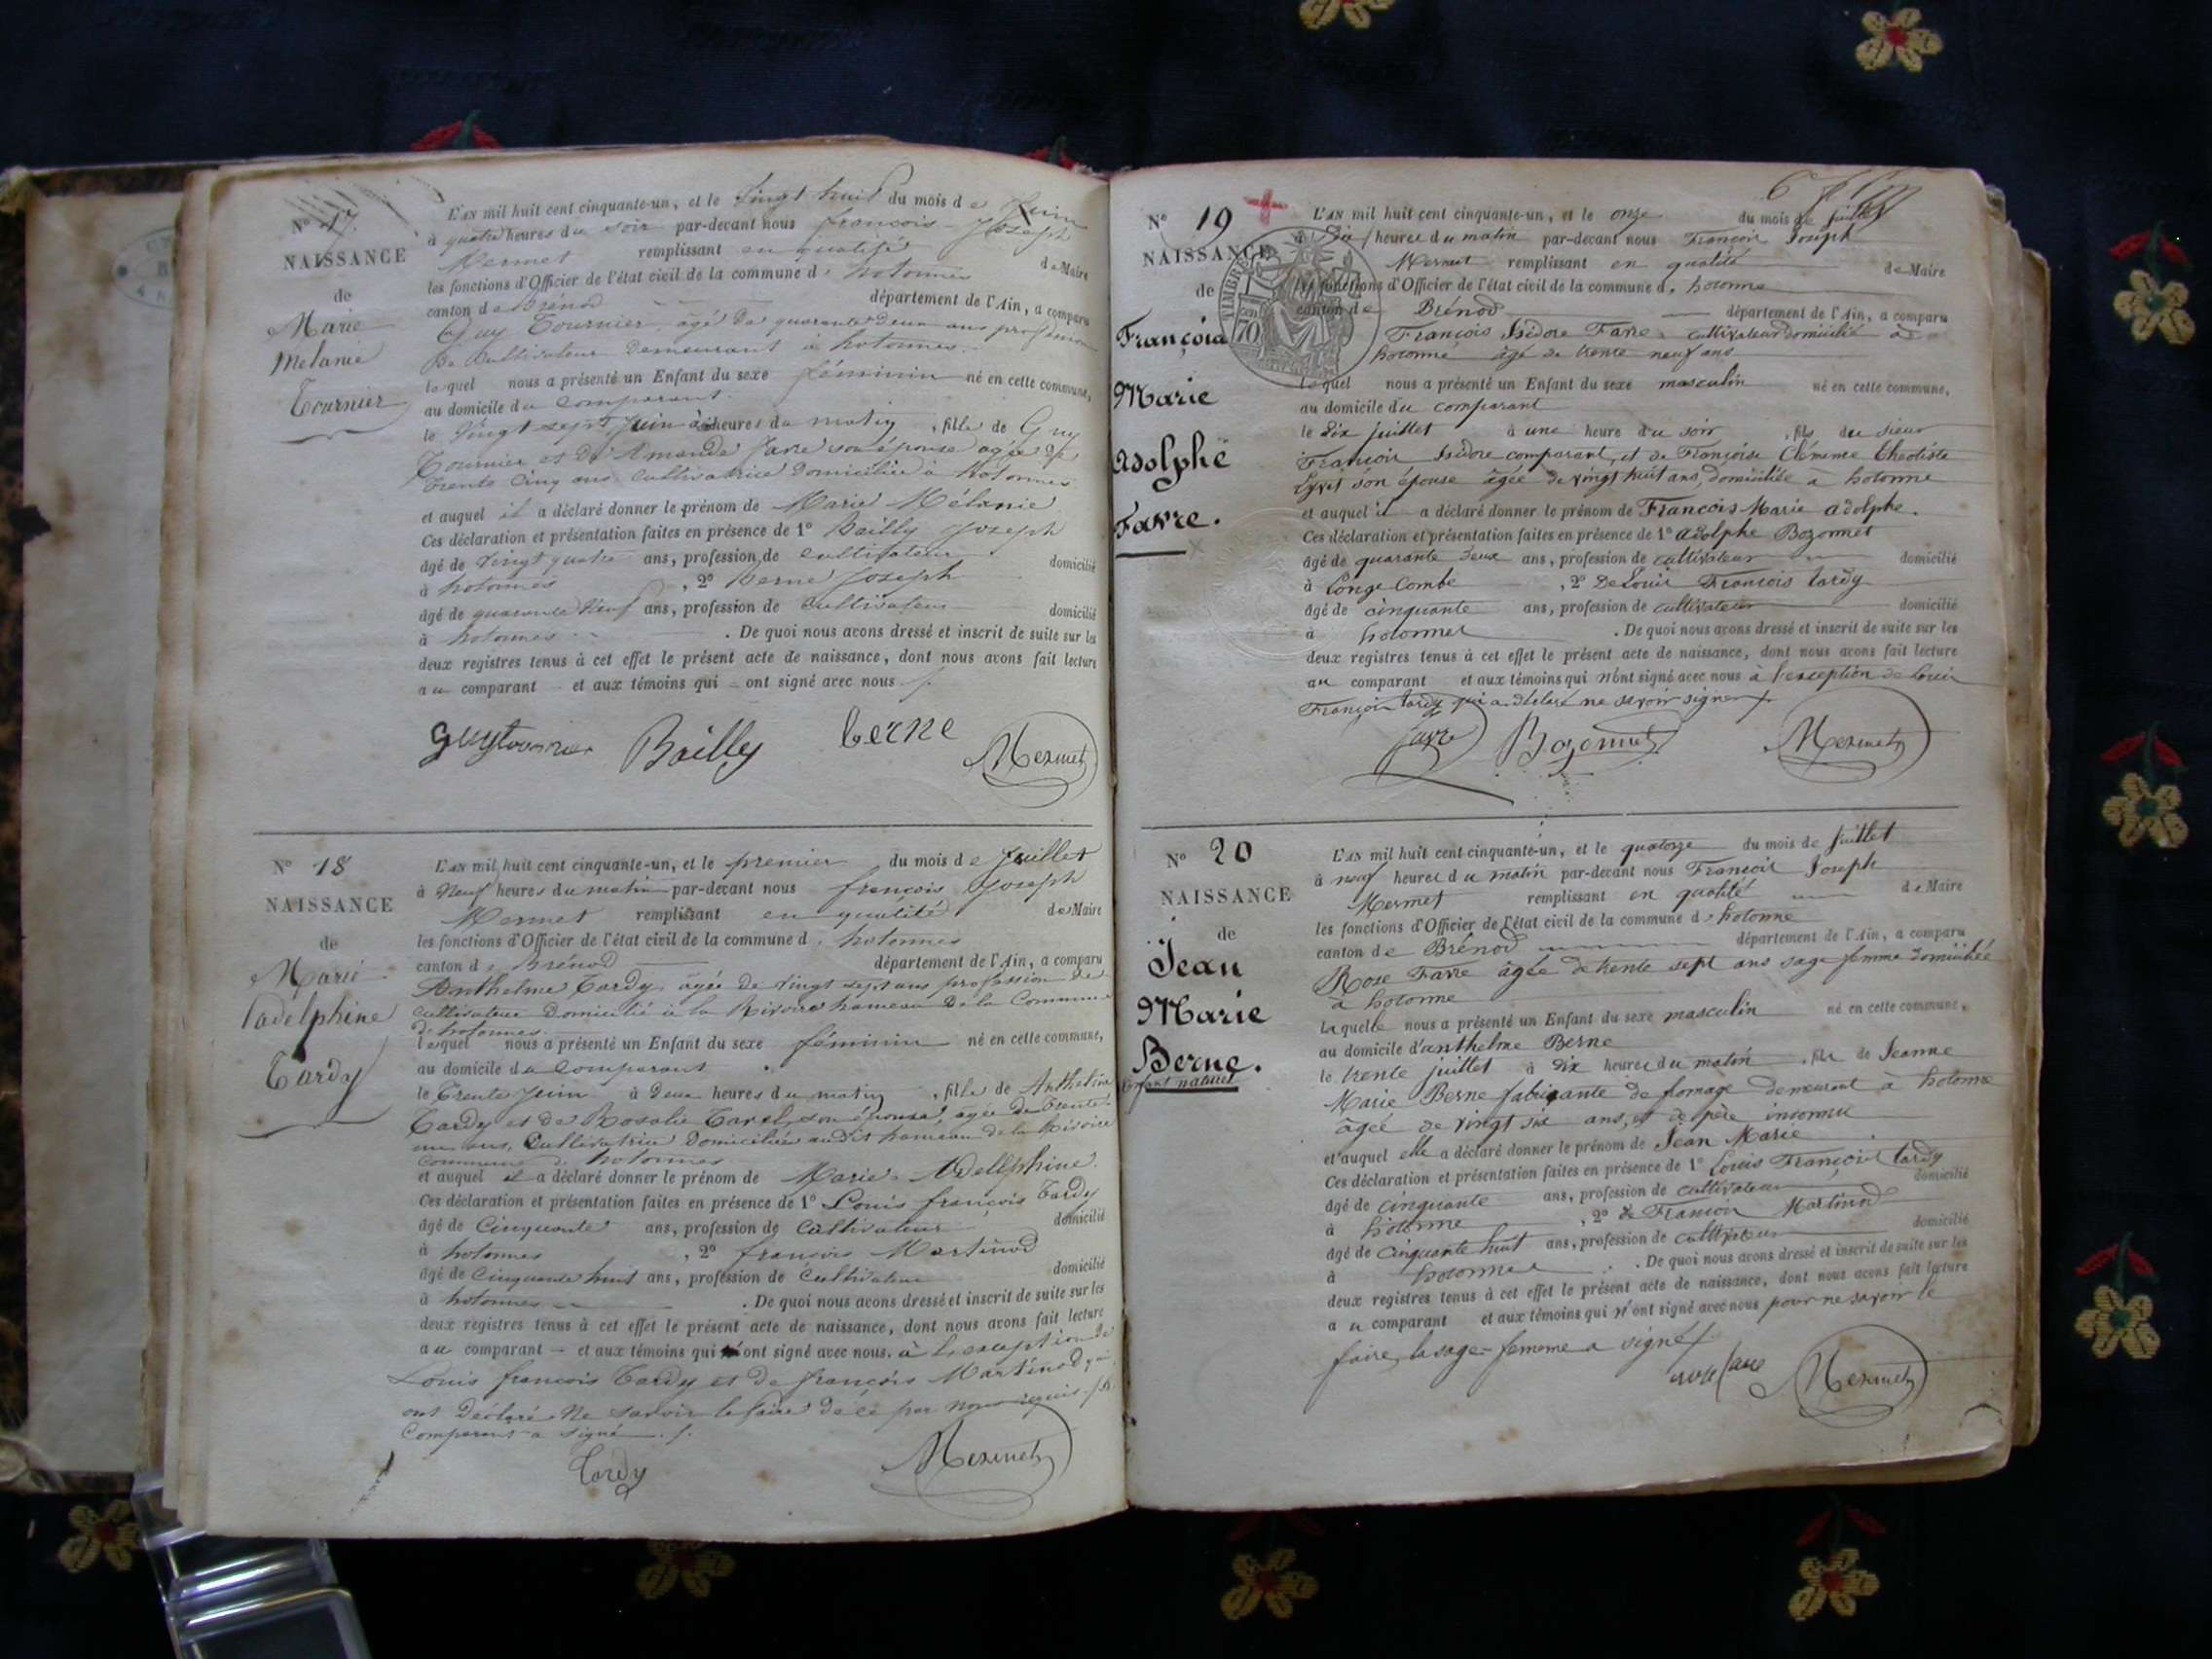 N° 17.
NAISSANCE
de
Marie
Melanie
Tournier
L'AN mil huit cent cinquante-un, et le Vingt huit du mois de Juin
à quatre heures du soir par-devant nous françois-Joseph
Mermet remplissant en qualité de Maire
les fonctions d'Officier de l'état civil de la commune d hotonnes
canton de Brénod département de l'Ain, a comparu
Guy Tournier, âgé de quarante deux ans profession
de Cultivateur demeurant à hotonnes.
lequel nous a présenté un Enfant du sexe féminin né en cette commune,
au domicile du comparant
le Vingt sept Juin à heures du matin, fille de Guy
Tournier et de Amande favre son épouse agée de
trente cinq ans cultivatrice domiciliée à hotonnes
et auquel il a déclaré donner le prénom de Marie Mélanie
Ces déclaration et présentation faites en présence de 1° Bailly Joseph
âgé de vingt quatre ans, profession de cultivateur domicilié
à hotonnes, 2° Berne Joseph
âgé de quarante Neuf ans, profession de Cultivateur domicilié
à hotonnes. De quoi nous avons dressé et inscrit de suite sur les
deux registres tenus à cet effet le présent acte de naissance, dont nous avons fait lecture
au comparant et aux témoins qui ont signé avec nous
guytournier Bailly berne Mermet
N° 18
NAISSANCE
de
Marie
adelphine
Tardy
L'AN mil huit cent cinquante-un, et le premier du mois de Juillet
à Neuf heures du matin par-devant nous françois Joseph
Mermet remplissant en qualité de Maire
les fonctions d'Officier de l'état civil de la commune d hotonnes
canton de Brénod département de l'Ain, a comparu
Anthelme Tardy âgée de Vingt sept ans profession de
cultivateur domicilié à la Rivoire hameau de la Commune
de hotonnes.
lequel nous a présenté un Enfant du sexe féminin né en cette commune,
au domicile du comparant
le Trente Juin à Deux heures du matin, fille de Anthelme
Tardy et de Rosalie son épouse, agée de Trente
un ans, Cultivatrice domiciliée audit hameau de la Rivoire
commune de hotonnes
et auquel il a déclaré donner le prénom de Marie Adellphine.
Ces déclaration et présentation faites en présence de 1° Louis françois Tardy
âgé de Cinquante ans, profession de Cultivateur domicilié
à hotonnes, 2° françois Martinod
âgé de Cinquante huit ans, profession de Cultivateur domicilié
à hotonnes. De quoi nous avons dressé et inscrit de suite sur les
deux registres tenus à cet effet le présent acte de naissance, dont nous avons fait lecture
au comparant et aux témoins qui ont signé avec nous. à L'exception de
Louis françois Tardy et de françois Martinod qui
ont Déclaré Ne savoir le faire de ce par nous requis. le
Comparant a signé
Tardy Mermet
N° 19
NAISSANCE
de
François
Marie
Adolphe
Favre.
TIMBRE
70
L'AN mil huit cent cinquante-un, et le onze du mois de juillet
à dix heures du matin par-devant nous François Joseph
Mermet remplissant en qualité de Maire
les fonctions d'Officier de l'état civil de la commune d, hotonne
canton de Brénod département de l'Ain, a comparu
François Isidore Favre cultivateur domicilié à
hotonne âgé de trente neuf ans
lequel nous a présenté un Enfant du sexe masculin né en cette commune,
au domicile du comparant
le dix juillet à une heure du soir, fils du sieur
François Isidore comparant, et de Françoise Clémence
son épouse âgée de vingt huit ans, domiciliée à hotonne
et auquel il a déclaré donner le prénom de François Marie adolphe.
Ces déclaration et présentation faites en présence de 1° adolphe Bozonnet
âgé de quarante deux ans, profession de cultivateur domicilié
à Longe Combe, 2° De Louis François tardy
âgé de cinquante ans, profession de cultivateur domicilié
à hotonnes. De quoi nous avons dressé et inscrit de suite sur les
deux registres tenus à cet effet le présent acte de naissance, dont nous avons fait lecture
au comparant et aux témoins qui n'ont signé avec nous à l'exception de Louis
François tardy qui a déclaré ne savoir signer
favre Bozonnet Mermet
N° 20
NAISSANCE
de
Jean
Marie
Berne.
Enfant naturel
L'AN mil huit cent cinquante-un, et le quatorze du mois de Juillet
à neuf heures du matin par-devant nous François Joseph
Mermet remplissant en qualité de Maire
les fonctions d'Officier de l'état civil de la commune d, hotonne
canton de Brénod département de l'Ain, a comparu
Rose Favre âgée de trente sept ans sage femme domiciliée
à hotonne
laquelle nous a présenté un Enfant du sexe masculin né en cette commune,
au domicile d'anthelme Berne
le trente juillet à dix heures du matin, fils de Jeanne
Marie Berne fabricante de fromage demeurant à hotonne
âgée de vingt six ans, et de père inconnu
et auquel elle a déclaré donner le prénom de Jean Marie
Ces déclaration et présentation faites en présence de 1° Louis François tardy
âgé de cinquante ans, profession de cultivateur domicilié
à hotonne, 2° de François Martinod
âgé de Cinquante huit ans, profession de cultivateur domicilié
à hotonnes. De quoi nous avons dressé et inscrit de suite sur les
deux registres tenus à cet effet le présent acte de naissance, dont nous avons fait lecture
au comparant et aux témoins qui n'ont signé avec nous pour ne savoir le
faire, la sage-femme a signé
Mermet